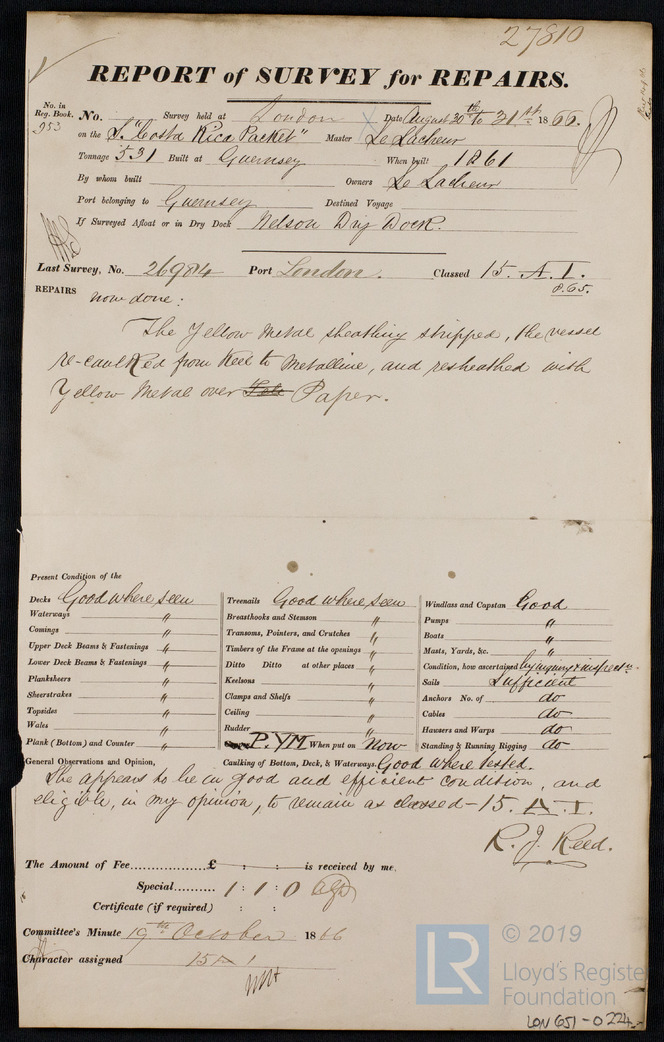 27810
REPORT of SURVEY for REPAIRS.
No. in
Reg. Book.
953
No. Survey held at London Date August 30th to 31st 1866.
on the S. "Costa Rica Packet" Master Le Lacheur
Tonnage 531 Built at Guernsey When built 1861
By whom built Owners Le Lacheur
Port belonging to Guernsey Destined Voyage
If Surveyed Afloat or in Dry Dock Nelson Dry Dock.
Last Survey, No. 26984 Port London. Classed 15. A. 1.
8.65.
REPAIRS now done:
The Yellow Metal sheathing stripped, the vessel
re-caulked from Keel to Metalline, and resheathed with
Yellow Metal over Paper.
Present Condition of the
Decks Good where seen
Waterways "
Comings "
Upper Deck Beams & Fastenings "
Lower Deck Beams & Fastenings "
Planksheers "
Sheerstrakes "
Topsides "
Wales "
Plank (Bottom) and Counter "
Treenails Good where seen
Breasthooks and Stemson "
Transoms, Pointers, and Crutches "
Timbers of the Frame at the openings "
Ditto Ditto at other places "
Keelsons "
Clamps and Shelfs "
Ceiling "
Rudder "
P. YM When put on Now
Caulking of Bottom, Deck, & Waterways. Good where tested.
Windlass and Capstan Good
Pumps "
Boats "
Masts, Yards, &c. "
Condition, how ascertained by inquiry & inspectn.
Sails Sufficient
Anchors No. of do
Cables do
Hawsers and Warps do
Standing & Running Rigging do
General Observations and Opinion,
She appears to be in good and efficient condition, and
eligible, in my opinion, to remain as classed - 15. A. 1.
R. J. Reed.
The Amount of Fee £ : : is received by me,
Special 1 : 1 : 0
Certificate (if required) : :
Committee's Minute 19th October 1866
Character assigned 15 A 1
LR
© 2019
Lloyd's Registe
Foundation
LON 651-0224